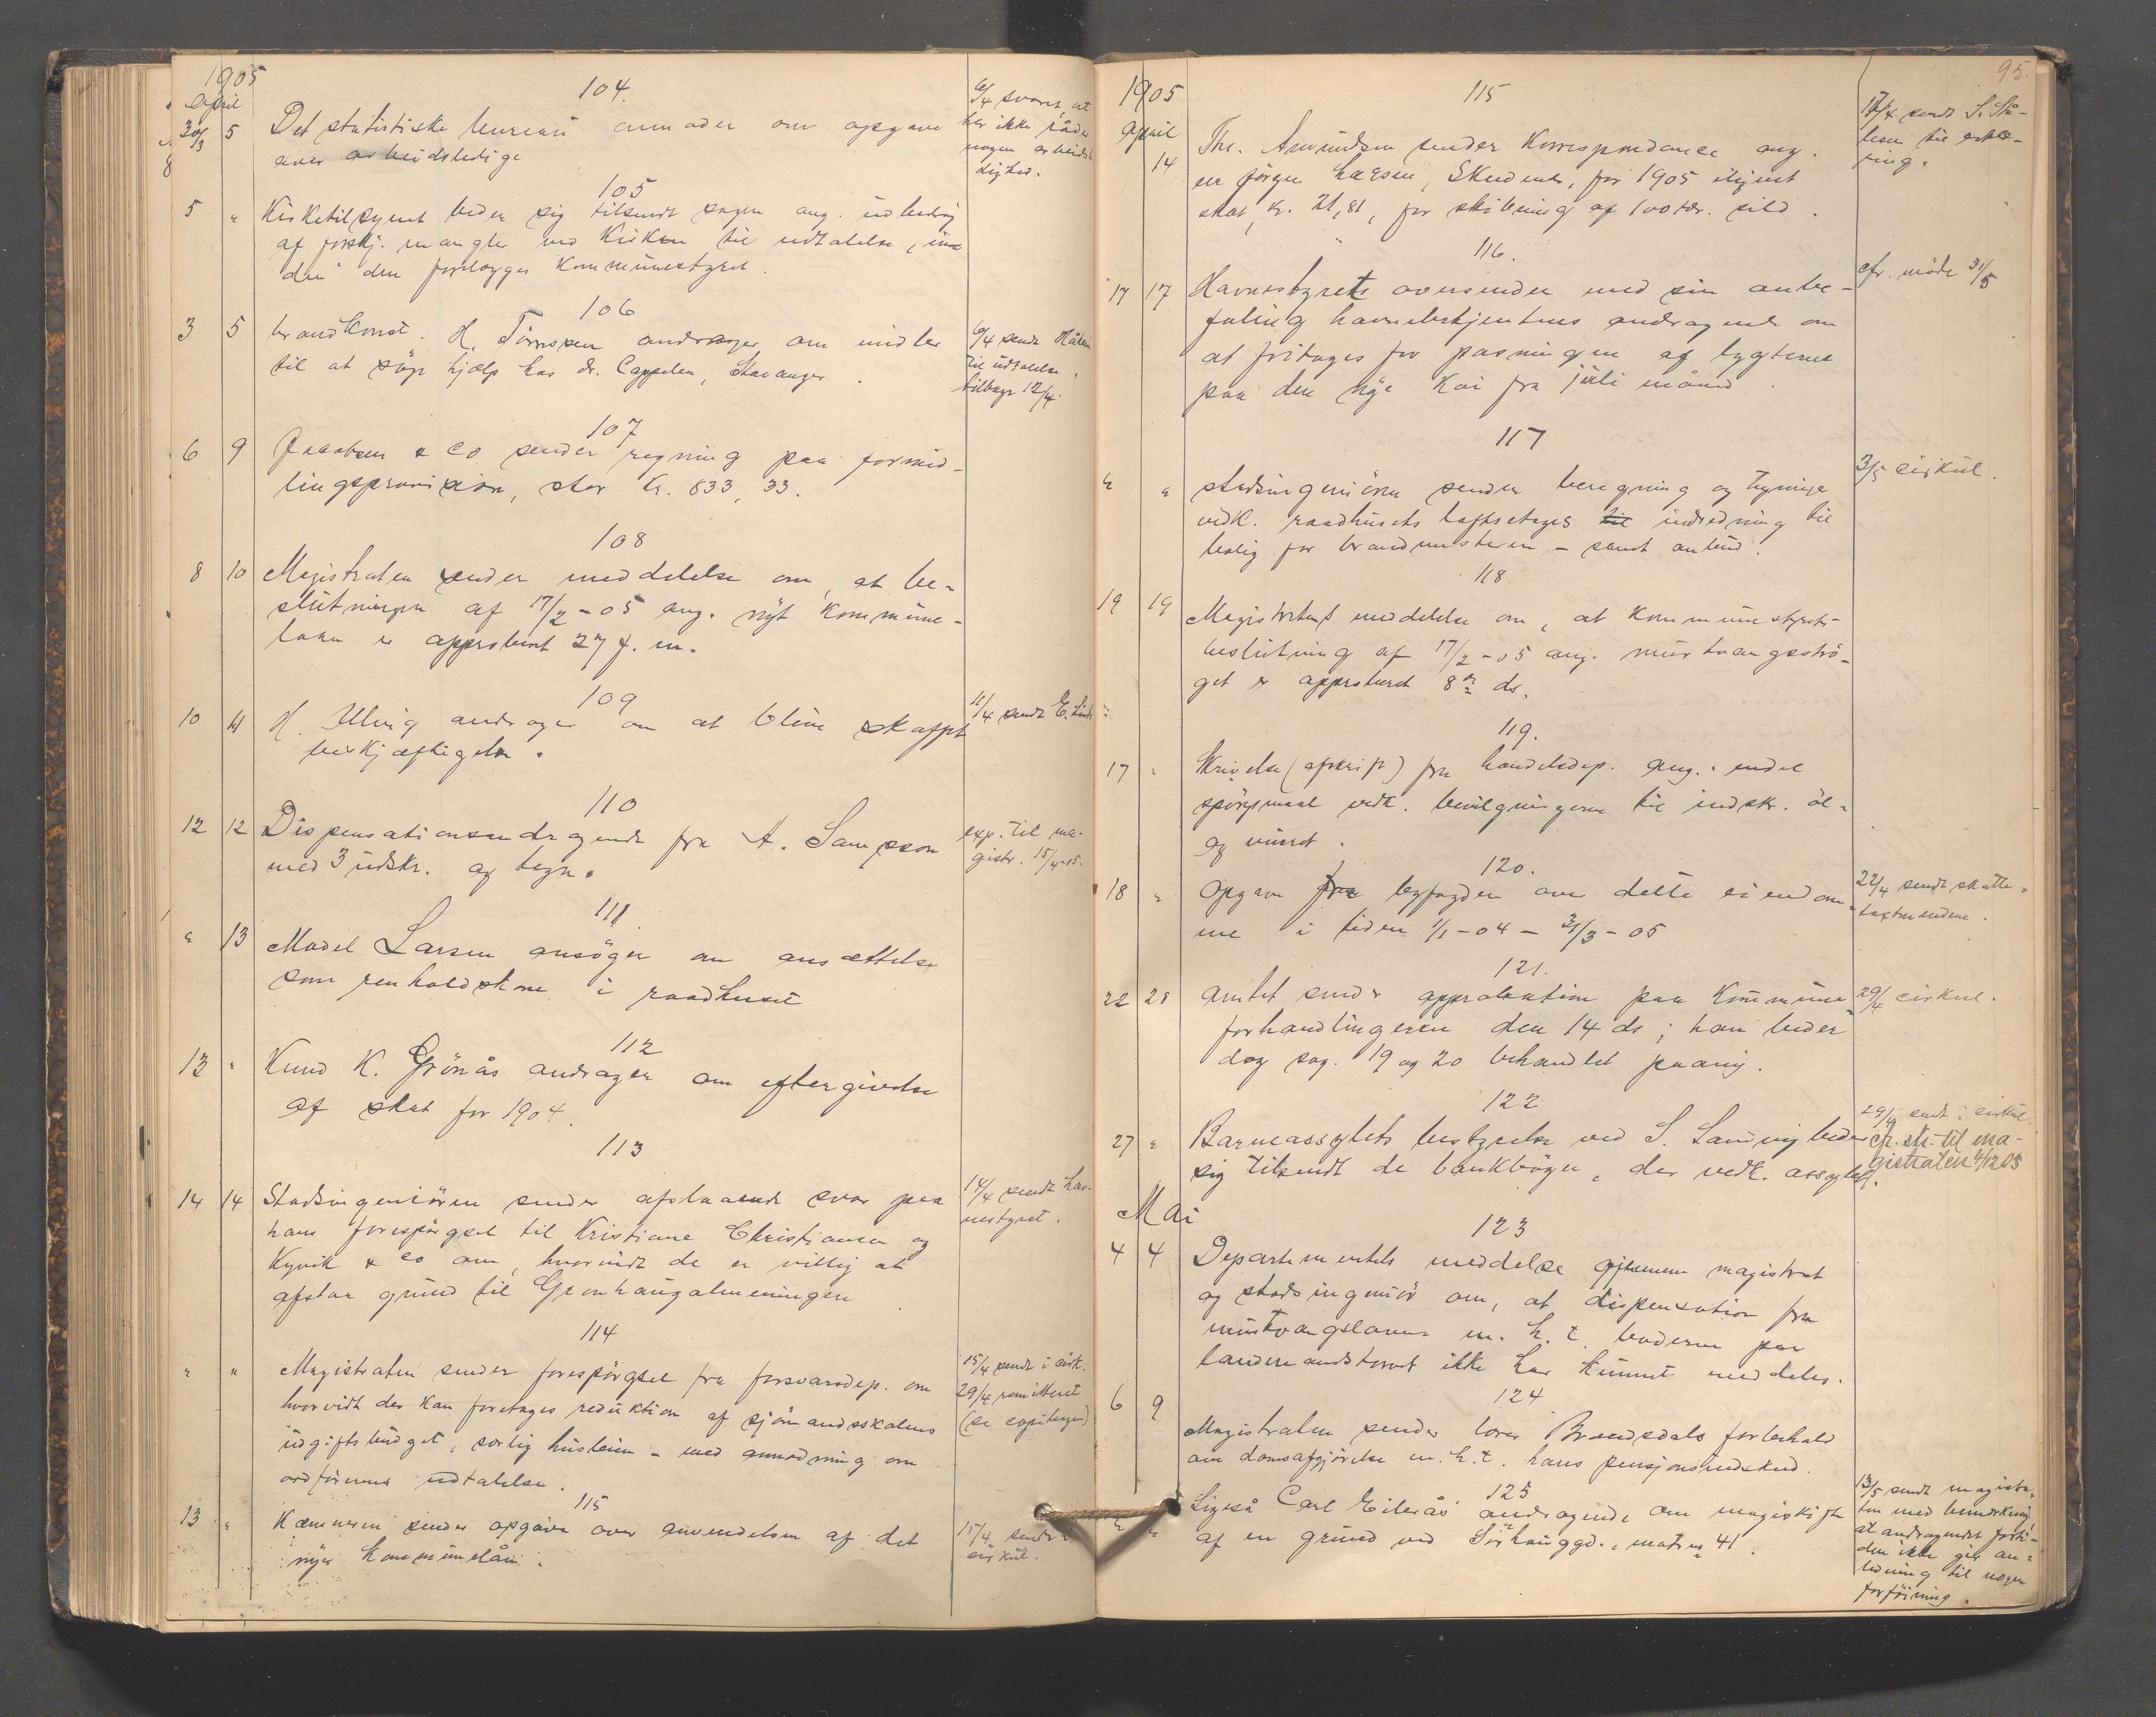 1905
April
104.
30/3 5 Det statistiske bureau anmoder om opgave
over arbeidsledige
6/4 svaret, at
her ikke råder
nogen arbeids-
lighed.
8
105
5 " Kirketilsynet beder sig tilsendt sagen ang. udbedring
af forskj. mangler ved Kirken til udtalelse, inden
den forelægges Kommunestyret.
106
3 5 brandkonst. H. Tönnesen andrager om midler
til at søge hjælp hos dr. Cappelen, Stavanger.
6/4 sendt
til udtalelse,
tilbage 12/4.
107
6 9 Jacobsen & Co sender regning paa formid-
lingsprovision, stor kr. 833,33.
108
8 10 Magistraten sender meddelelse om, at be-
slutningen af 17/2-05 ang. nyt kommune-
laan er approberet 27 f. m.
109
10 11 H. Elling andrager om at blive skaffet
beskjæftigelse.
11/4 sendt E.
110
12 12 Dispensationsandragende fra A. Sampson
med 3 udskr. og tegn.
exp. til ma-
gistr. 15/4-05.
111
" 13 Madel Larsen ansöger om ansættelse
som renholdskone i raadhuset
112
13 " Knud K. Grönås andrager om eftergivelse
af skat for 1904.
113
14 14 Stadsingeniören sender afslaaende svar paa
hans forespörgsel til Kristiane Christiansen og
Kyvik & Co om, hvorvidt de er villig at
afstaa grund til Gronhaugalmeningen
14/4 sendt hav-
nestyret.
114
" " Magistraten sender forespörgsel fra forsvarsdep. om
hvorvidt der kan foretages reduktion af sjömandsskolens
udgiftsbudget, særlig husleien - med anmodning om
ordförerens udtalelse.
15/4 sendt i cirk.
29/4 remitteret
(se copibogen)
115
13 " Kæmneren sender opgave over anvendelsen af det
nye kommunelån.
15/4 sendt
cirkul.
95.
1905
April
115
14 Th. Amundsen sender Korrespondance ang.
en Jörgen Larsen, Skudenes, for 1905 ilignet
skat, kr. 21,81, for skibning af 100 tdr. sild.
17/4 sendt S. Stå-
lesen til erklæ-
ring.
116.
17 17 Havnestyrets oversender med sin anbe-
faling havnebetjentens andragende om
at fritages for pasningen af lygterne
paa den nye Kai fra juli måned.
cfr. möde 31/5
117
" " stadsingeniören sender beregning og tegninger
vedk. raadhusets loftsetages til indredning til
bolig for brandmesteren - samt anbud.
3/5 cirkul.
118
19 19 Magistratens meddelelse om, at kommunestyrets-
beslutning af 17/2-05 ang. murtvangsströ-
get er approberet 8de ds.
119.
17 " Skrivelse (afskrift) fra handelsdep. ang. endel
spörgsmaal vedk. bevilgningerne til indskr. öl-
og vinret.
120.
18 " Opgave fra byfogden over delte eiendom-
me i tiden 1/1-04 - 31/3-05
22/4 sendt skatte-
taxtmændene.
121.
22 28 Amtet sender approbation paa kommune-
forhandlingerne den 14 ds; han beder
dog sag. 19 og 20 behandlet paany.
29/4 cirkul.
122
27 " Barneasylets bestyrelse ved S. Sandvig beder
sig tilsendt de bankböger, der vedk. assylet.
29/4 sendt i cirkul.
cfr. skr. til ma-
gistraten 4/12 05
Mai
123
4 4 Departementets meddelse gjennem magistrat
og stadsingeniör om, at dispensation fra
murtvangsloven m. h. t. boderne paa
landemandstorvet ikke har kunnet meddeles.
124
6 9 Magistraten sender lærer Brandsdals forbehold
om domsafgjörelse m. h. t. hans pensjonsindskud.
125
" " Ligeså Carl Eilerås' andragende om magiskifte
af en grund ved Sörhauggd., matr. nr 41.
13/5 sendt magistra-
ten med bemerkning,
at andragendet forti-
den ikke gir an-
ledning til nogen
forföining.